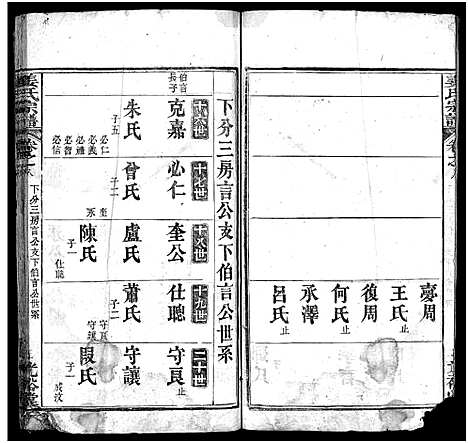 姜氏宗譜
卷之八
夢周
王氏 止
復周
何氏 止
承澤
呂氏 止
下分三房言公支下伯言公世系
十六世
克嘉
伯言長子
朱氏
子五
必仁
必義
必通
必智
必信
十七世
必仁
曾氏
子二
奎
永
十八世
奎公
盧氏
陳氏
子一
仕聰
十九世
仕聰
蕭氏
子二
守良
守讓
二十世
守良 止
守讓
段氏
子一
成汶
姜氏宗譜
卷之八
下分三房言公支下伯言公世系